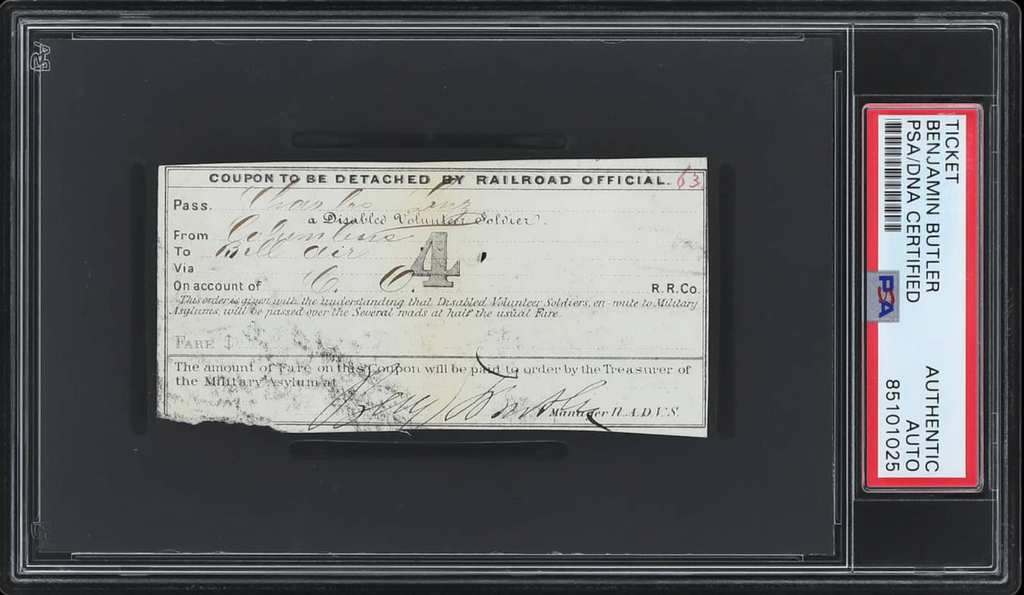 COUPON TO BE DETACHED BY RAILROAD OFFICIAL. 63
Pass. Charles
a Disabled Volunteer Soldier.
From Columbus
To Bell air
Via
4
On account of C. O. R.R.Co.
This order is given with the understanding that Disabled Volunteer Soldiers, en-route to Military
Asylums, will be passed over the Several roads at half the usual Fare.
FARE $
The amount of Fare on this Coupon will be paid to order by the Treasurer of
the Military Asylum at
Benj F Butler Manager N.A.D.V.S.
TICKET
BENJAMIN BUTLER
PSA/DNA CERTIFIED
AUTHENTIC
AUTO
85101025
PSA